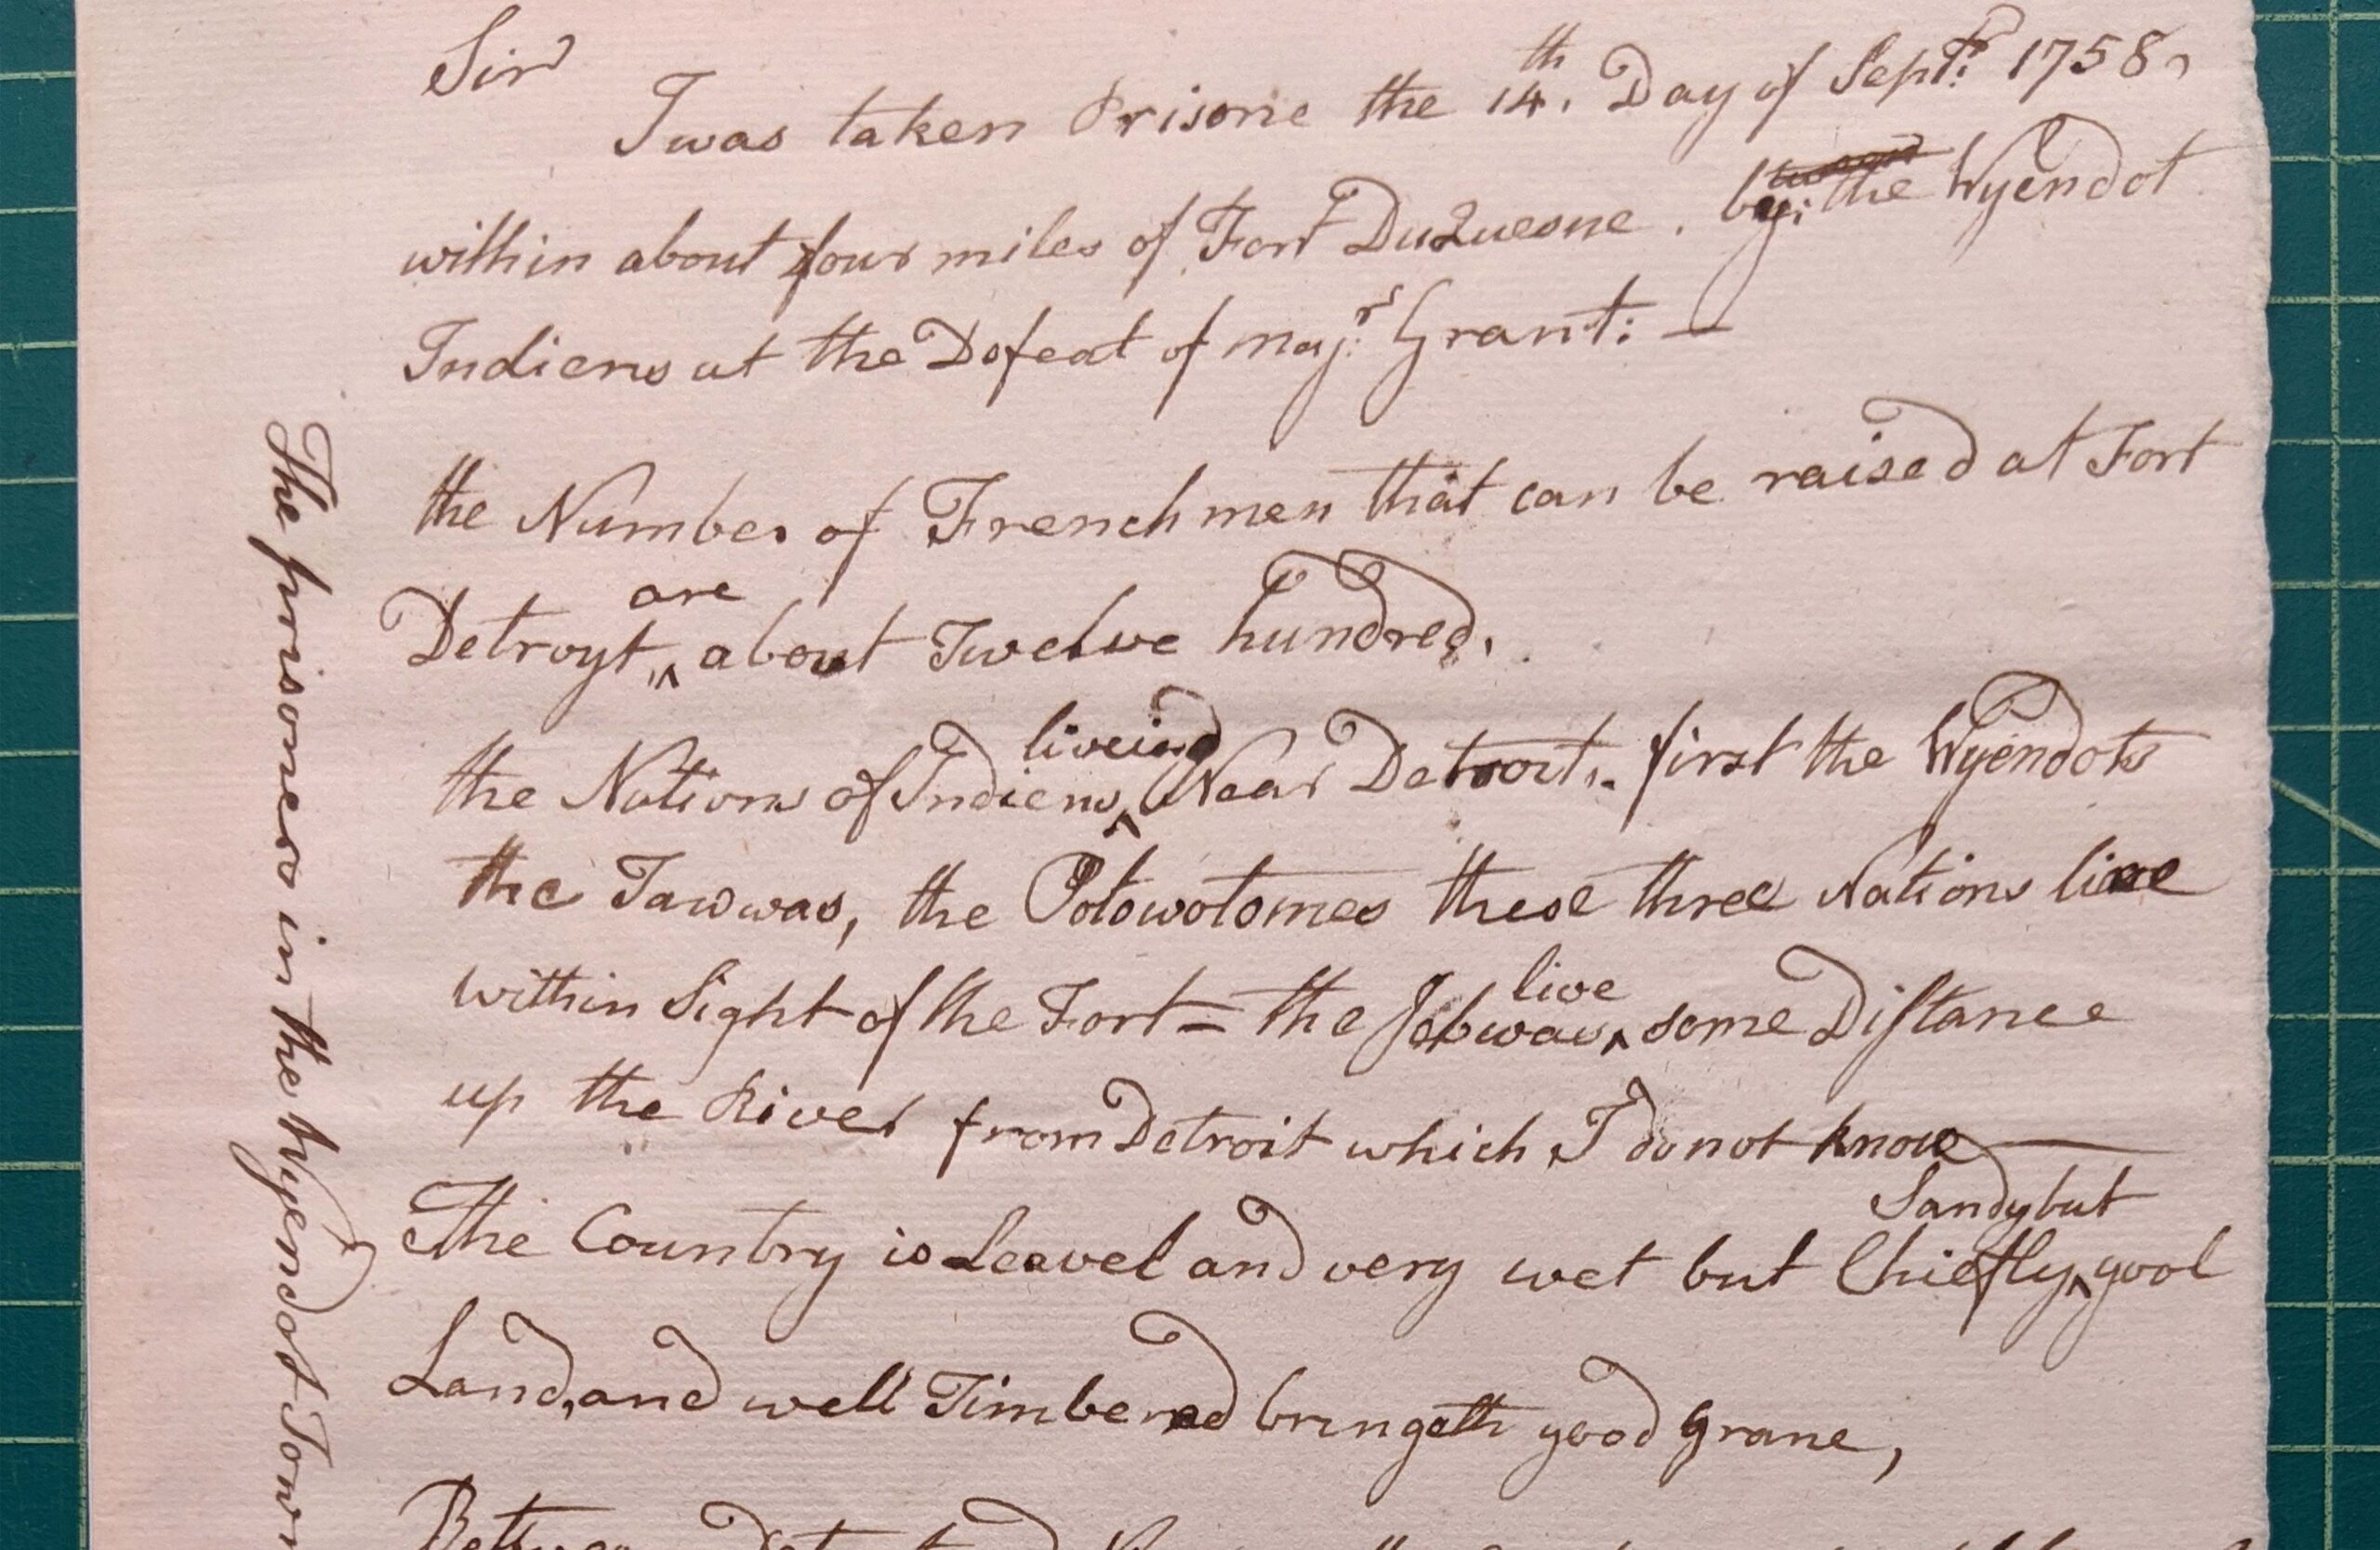 Sir
I was taken Prisone the 14th. Day of Septr: 1758,
within about four miles of Fort DuQuesne. by: the Wyendot
Indiens at the Defeat of Majr: Grant: —
the Number of French men that can be raised at Fort
Detroyt, are about Twelve hundred.
the Nations of Indiens liveing Near Detroit,. first the Wyendots
the Tawwas, the Potowotomes these three Nations live
within Sight of the Fort = the Jebwas live some Distance
up the River from Detroit which I do not know —
The Country is Leavel and very wet but Chiefly Sandy but good
Land, and well Timbered bringeth good grane,
The prisoners in the Wyendot Town